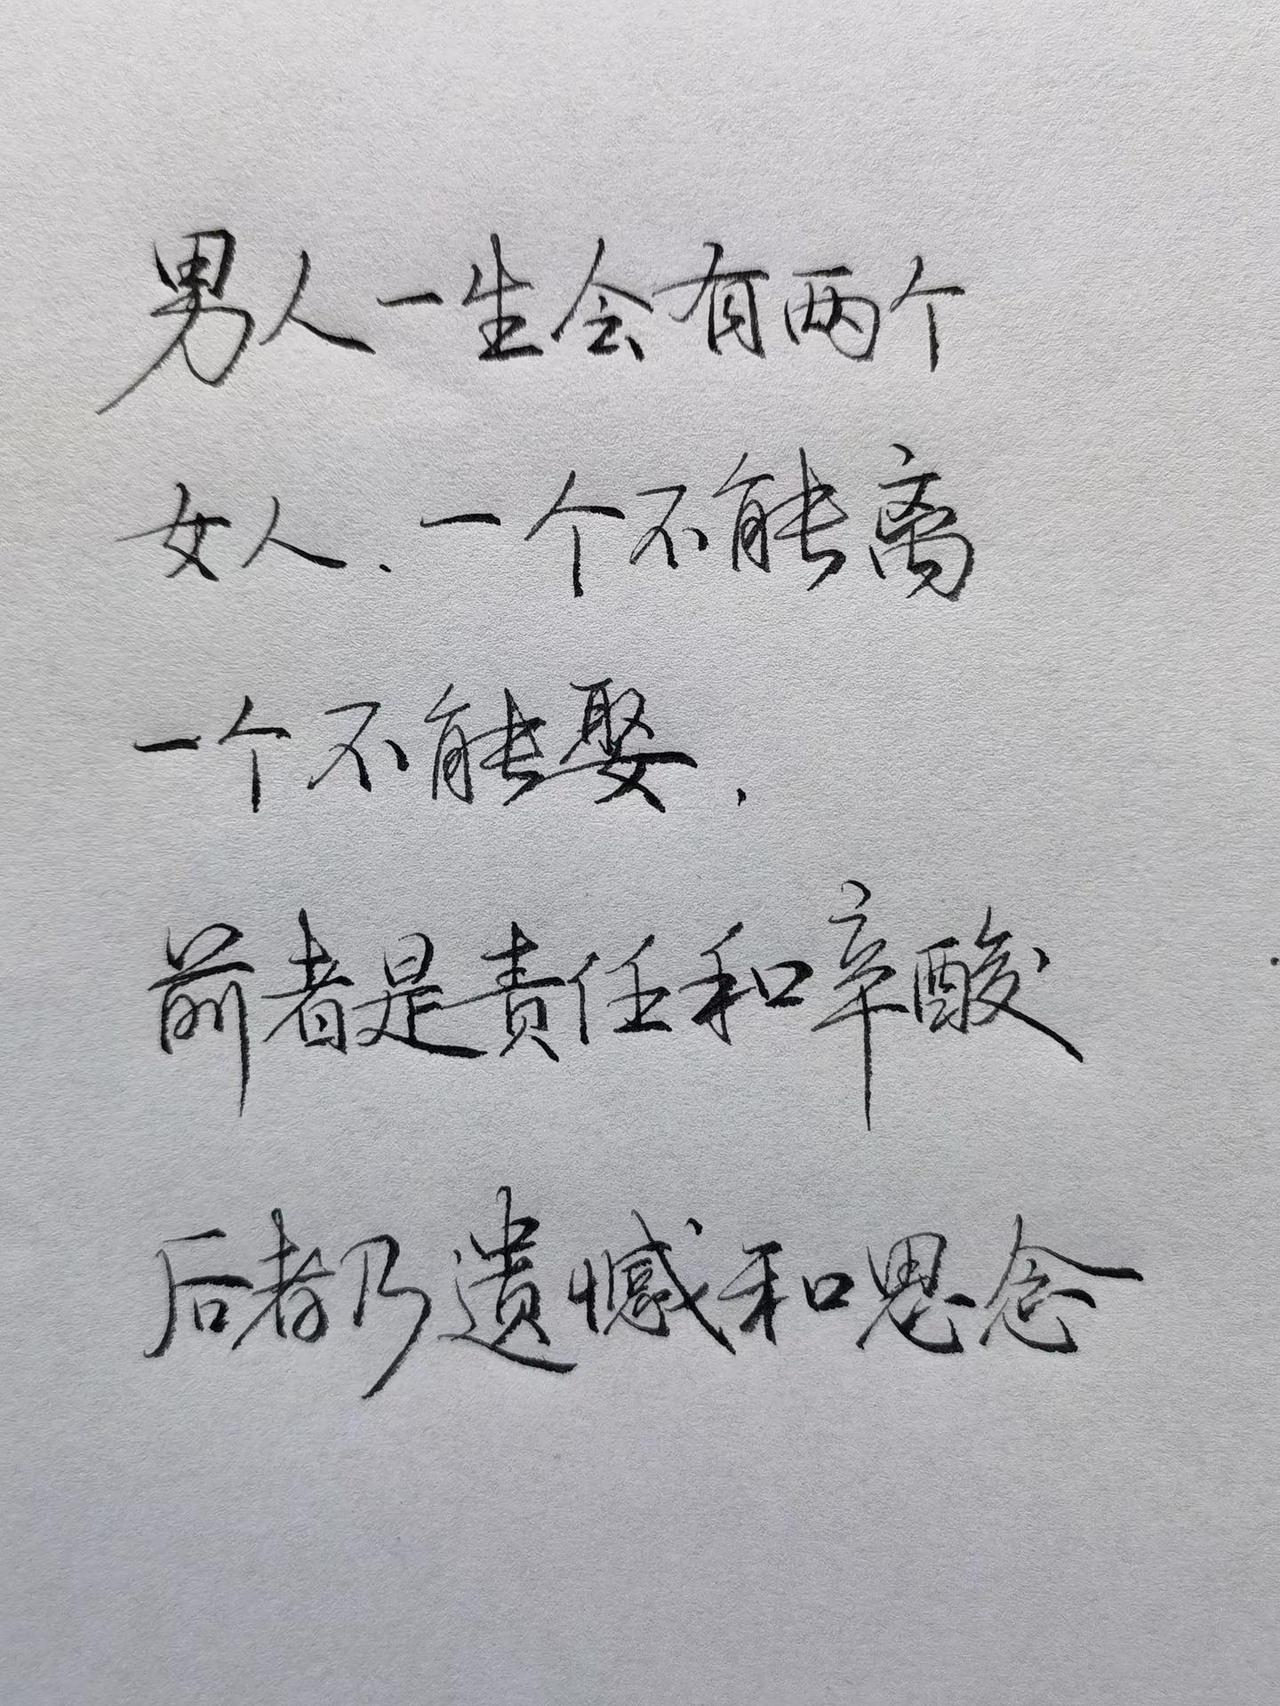 男人一生会有两个
女人、一个不能离
一个不能娶.
前者是责任和辛酸
后者乃遗憾和思念